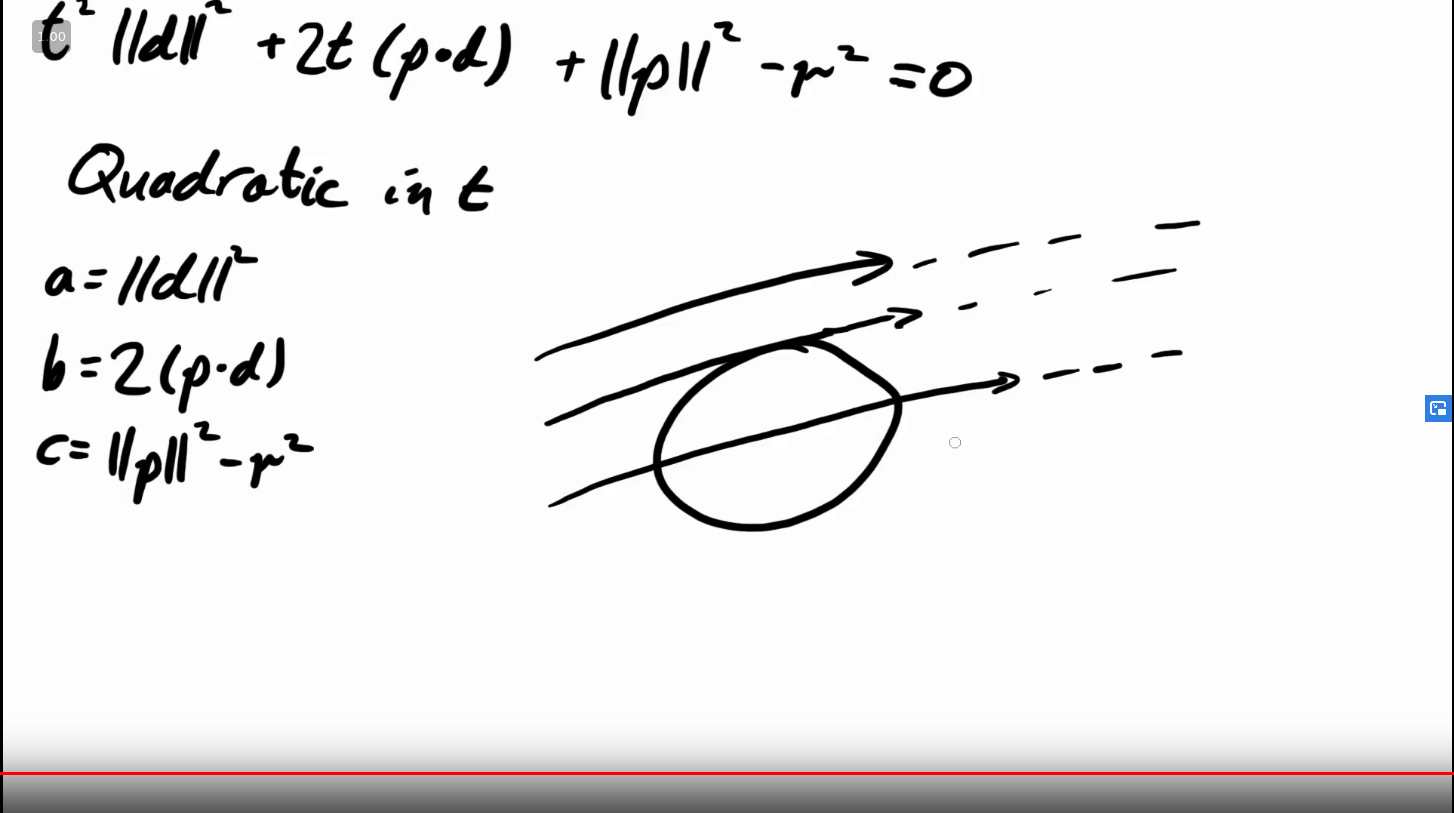 1.00
t² ||d||² + 2t (p·d) + ||p||² - r² = 0
Quadratic in t
a = ||d||²
b = 2(p·d)
c = ||p||² - r²